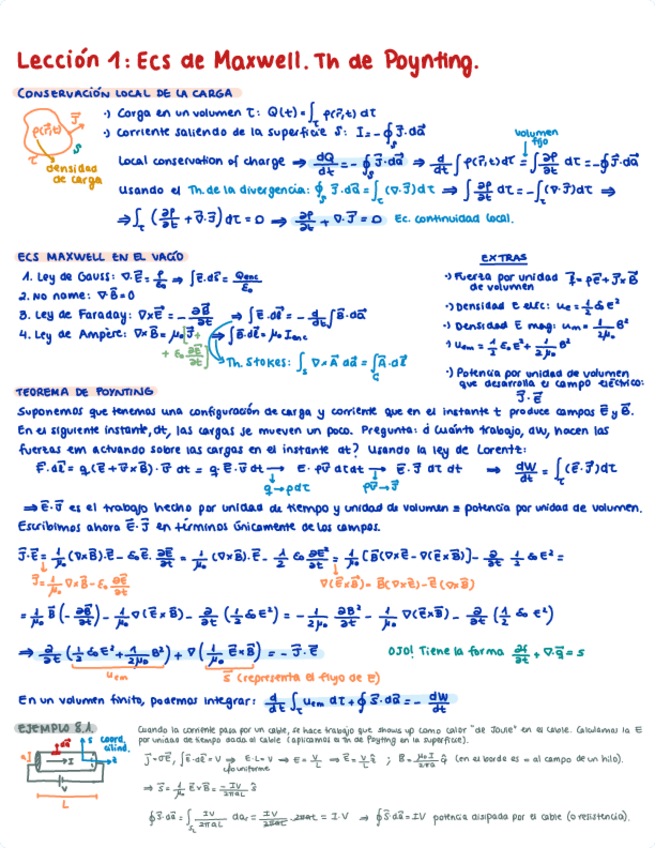 Lección 1: Ecs de Maxwell. Th de Poynting.
CONSERVACIÓN LOCAL DE LA CARGA
·) Carga en un volumen τ: Q(t) = ∫_τ ρ(r⃗,t) dτ
·) Corriente saliendo de la superficie S: I = -∮ J⃗·da⃗
ρ(r⃗,t) J⃗ S τ
densidad de carga
volumen fijo
Local conservation of charge ⇒ dQ/dt = -∮_S J⃗·da⃗ ⇒ d/dt ∫ρ(r⃗,t)dτ = ∫ ∂ρ/∂t dτ = -∮J⃗·da⃗
Usando el Th. de la divergencia: ∮_S J⃗·da⃗ = ∫_τ (∇·J⃗)dτ ⇒ ∫ ∂ρ/∂t dτ = -∫_τ (∇·J⃗)dτ ⇒
⇒ ∫_τ (∂ρ/∂t + ∇·J⃗) dτ = 0 ⇒ ∂ρ/∂t + ∇·J⃗ = 0 Ec. continuidad local.
ECS MAXWELL EN EL VACÍO
1. Ley de Gauss: ∇·E⃗ = ρ/ε₀ ⇒ ∫E⃗·ds⃗ = Qenc/ε₀
2. No name: ∇·B⃗ = 0
3. Ley de Faraday: ∇×E⃗ = -∂B⃗/∂t ⇒ ∫E⃗·dl⃗ = -d/dt ∫B⃗·da⃗
4. Ley de Ampère: ∇×B⃗ = μ₀[J⃗ + ε₀ ∂E⃗/∂t] ⇒ ∫B⃗·dl⃗ = μ₀ Ienc
Th. Stokes: ∫_S ∇×A⃗ da⃗ = ∫_C A⃗·dl⃗
EXTRAS
·) Fuerza por unidad de volumen f⃗ = ρE⃗ + J⃗×B⃗
·) Densidad E elec: ue = 1/2 ε₀E²
·) Densidad E mag: um = 1/2μ₀ B²
·) uem = 1/2 ε₀E² + 1/2μ₀ B²
·) Potencia por unidad de volumen
que desarrolla el campo eléctrico:
J⃗·E⃗
TEOREMA DE POYNTING
Suponemos que tenemos una configuración de carga y corriente que en el instante t produce campos E⃗ y B⃗.
En el siguiente instante, dt, las cargas se mueven un poco. Pregunta: ¿Cuánto trabajo, dW, hacen las
fuerzas em actuando sobre las cargas en el instante dt? Usando la ley de Lorentz:
F⃗·dl⃗ = q(E⃗ + v⃗×B⃗)·v⃗ dt = q E⃗·v⃗ dt → E⃗·ρv⃗ dτdt → E⃗·J⃗ dτ dt ⇒ dW/dt = ∫_τ (E⃗·J⃗)dτ
q→ρdτ ρv⃗→J⃗
⇒ E⃗·J⃗ es el trabajo hecho por unidad de tiempo y unidad de volumen ≡ potencia por unidad de volumen.
Escribimos ahora E⃗·J⃗ en términos únicamente de los campos.
J⃗·E⃗ = 1/μ₀ (∇×B⃗)·E⃗ - ε₀E⃗·∂E⃗/∂t = 1/μ₀ (∇×B⃗)·E⃗ - 1/2 ε₀ ∂E²/∂t = 1/μ₀ [B⃗(∇×E⃗ - ∇(E⃗×B⃗)] - ∂/∂t 1/2 ε₀E² =
J⃗ = 1/μ₀ ∇×B⃗ - ε₀ ∂E⃗/∂t
∇(E⃗×B⃗) = B⃗(∇×E⃗) - E⃗(∇×B⃗)
= 1/μ₀ B⃗(-∂B⃗/∂t) - 1/μ₀ ∇(E⃗×B⃗) - ∂/∂t (1/2 ε₀E²) = -1/2μ₀ ∂B²/∂t - 1/μ₀ ∇(E⃗×B⃗) - ∂/∂t (1/2 ε₀E²)
⇒ ∂/∂t (1/2 ε₀E² + 1/2μ₀ B²) + ∇(1/μ₀ E⃗×B⃗) = -J⃗·E⃗ OJO! Tiene la forma ∂f/∂t + ∇·g⃗ = s
uem S⃗ (representa el flujo de E)
En un volumen finito, podemos integrar: d/dt ∫_τ uem dτ + ∮S⃗·da⃗ = -dW/dt
EJEMPLO 8.1
Cuando la corriente pasa por un cable, se hace trabajo que shows up como calor "de Joule" en el cable. Calculamos la E
por unidad de tiempo dada al cable (aplicamos el Th de Poynting en la superficie).
coord. cilind.
I
V
L
J⃗ = σE⃗, ∫E⃗·dl⃗ = V ⇒ E·L = V ⇒ E = V/L ⇒ E⃗ = V/L ẑ ; B⃗ = μ₀I/2πa φ̂ (en el borde es = al campo de un hilo).
E⃗ uniforme
⇒ S⃗ = 1/μ₀ E⃗×B⃗ = -IV/2πaL ŝ
∮S⃗·da⃗ = ∫_S IV/2πaL da = IV/2πaL · 2πaL = I·V ⇒ ∮S⃗·da⃗ = IV potencia disipada por el cable (o resistencia).